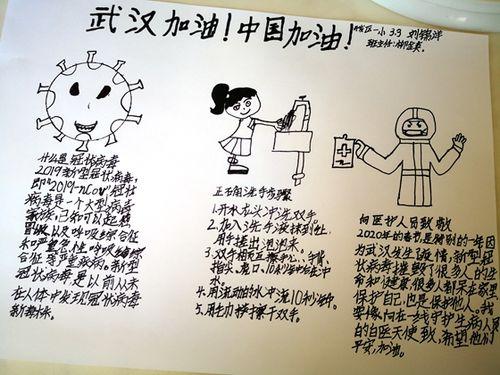 武汉加油！中国加油！
区一小 3.9 刘锦洋
什么是冠状病毒
2019新型冠状病毒,
即"2019-nCoV"冠状
病毒是一个大型病毒
家族,已知可以起感
冒以及呼吸综合征
和严重急性呼吸综
合征等严重疾病。新型
冠状病毒是以前从未
在人体中发现冠状病毒
新毒株。
正确洗手步骤
1.开水龙头冲洗双手。
2.加入洗手液抹到处,
用手搓出泡泡来。
3.双手相互摩手心、手背、
指尖、虎口、10秒
水。
4.用流动的水中洗10秒钟。
5.用毛巾擦干双手。
向医护人员致敬
2020年的春节是特别的一年因
为武汉发生了疫情,新型冠
状病毒摧毁了很多人的生
命和健康很多人都呆在家里
保护自己,也是保护他人。我
要像向在一线守护生病人员
的白医天使致,希望他们
平安,加油。